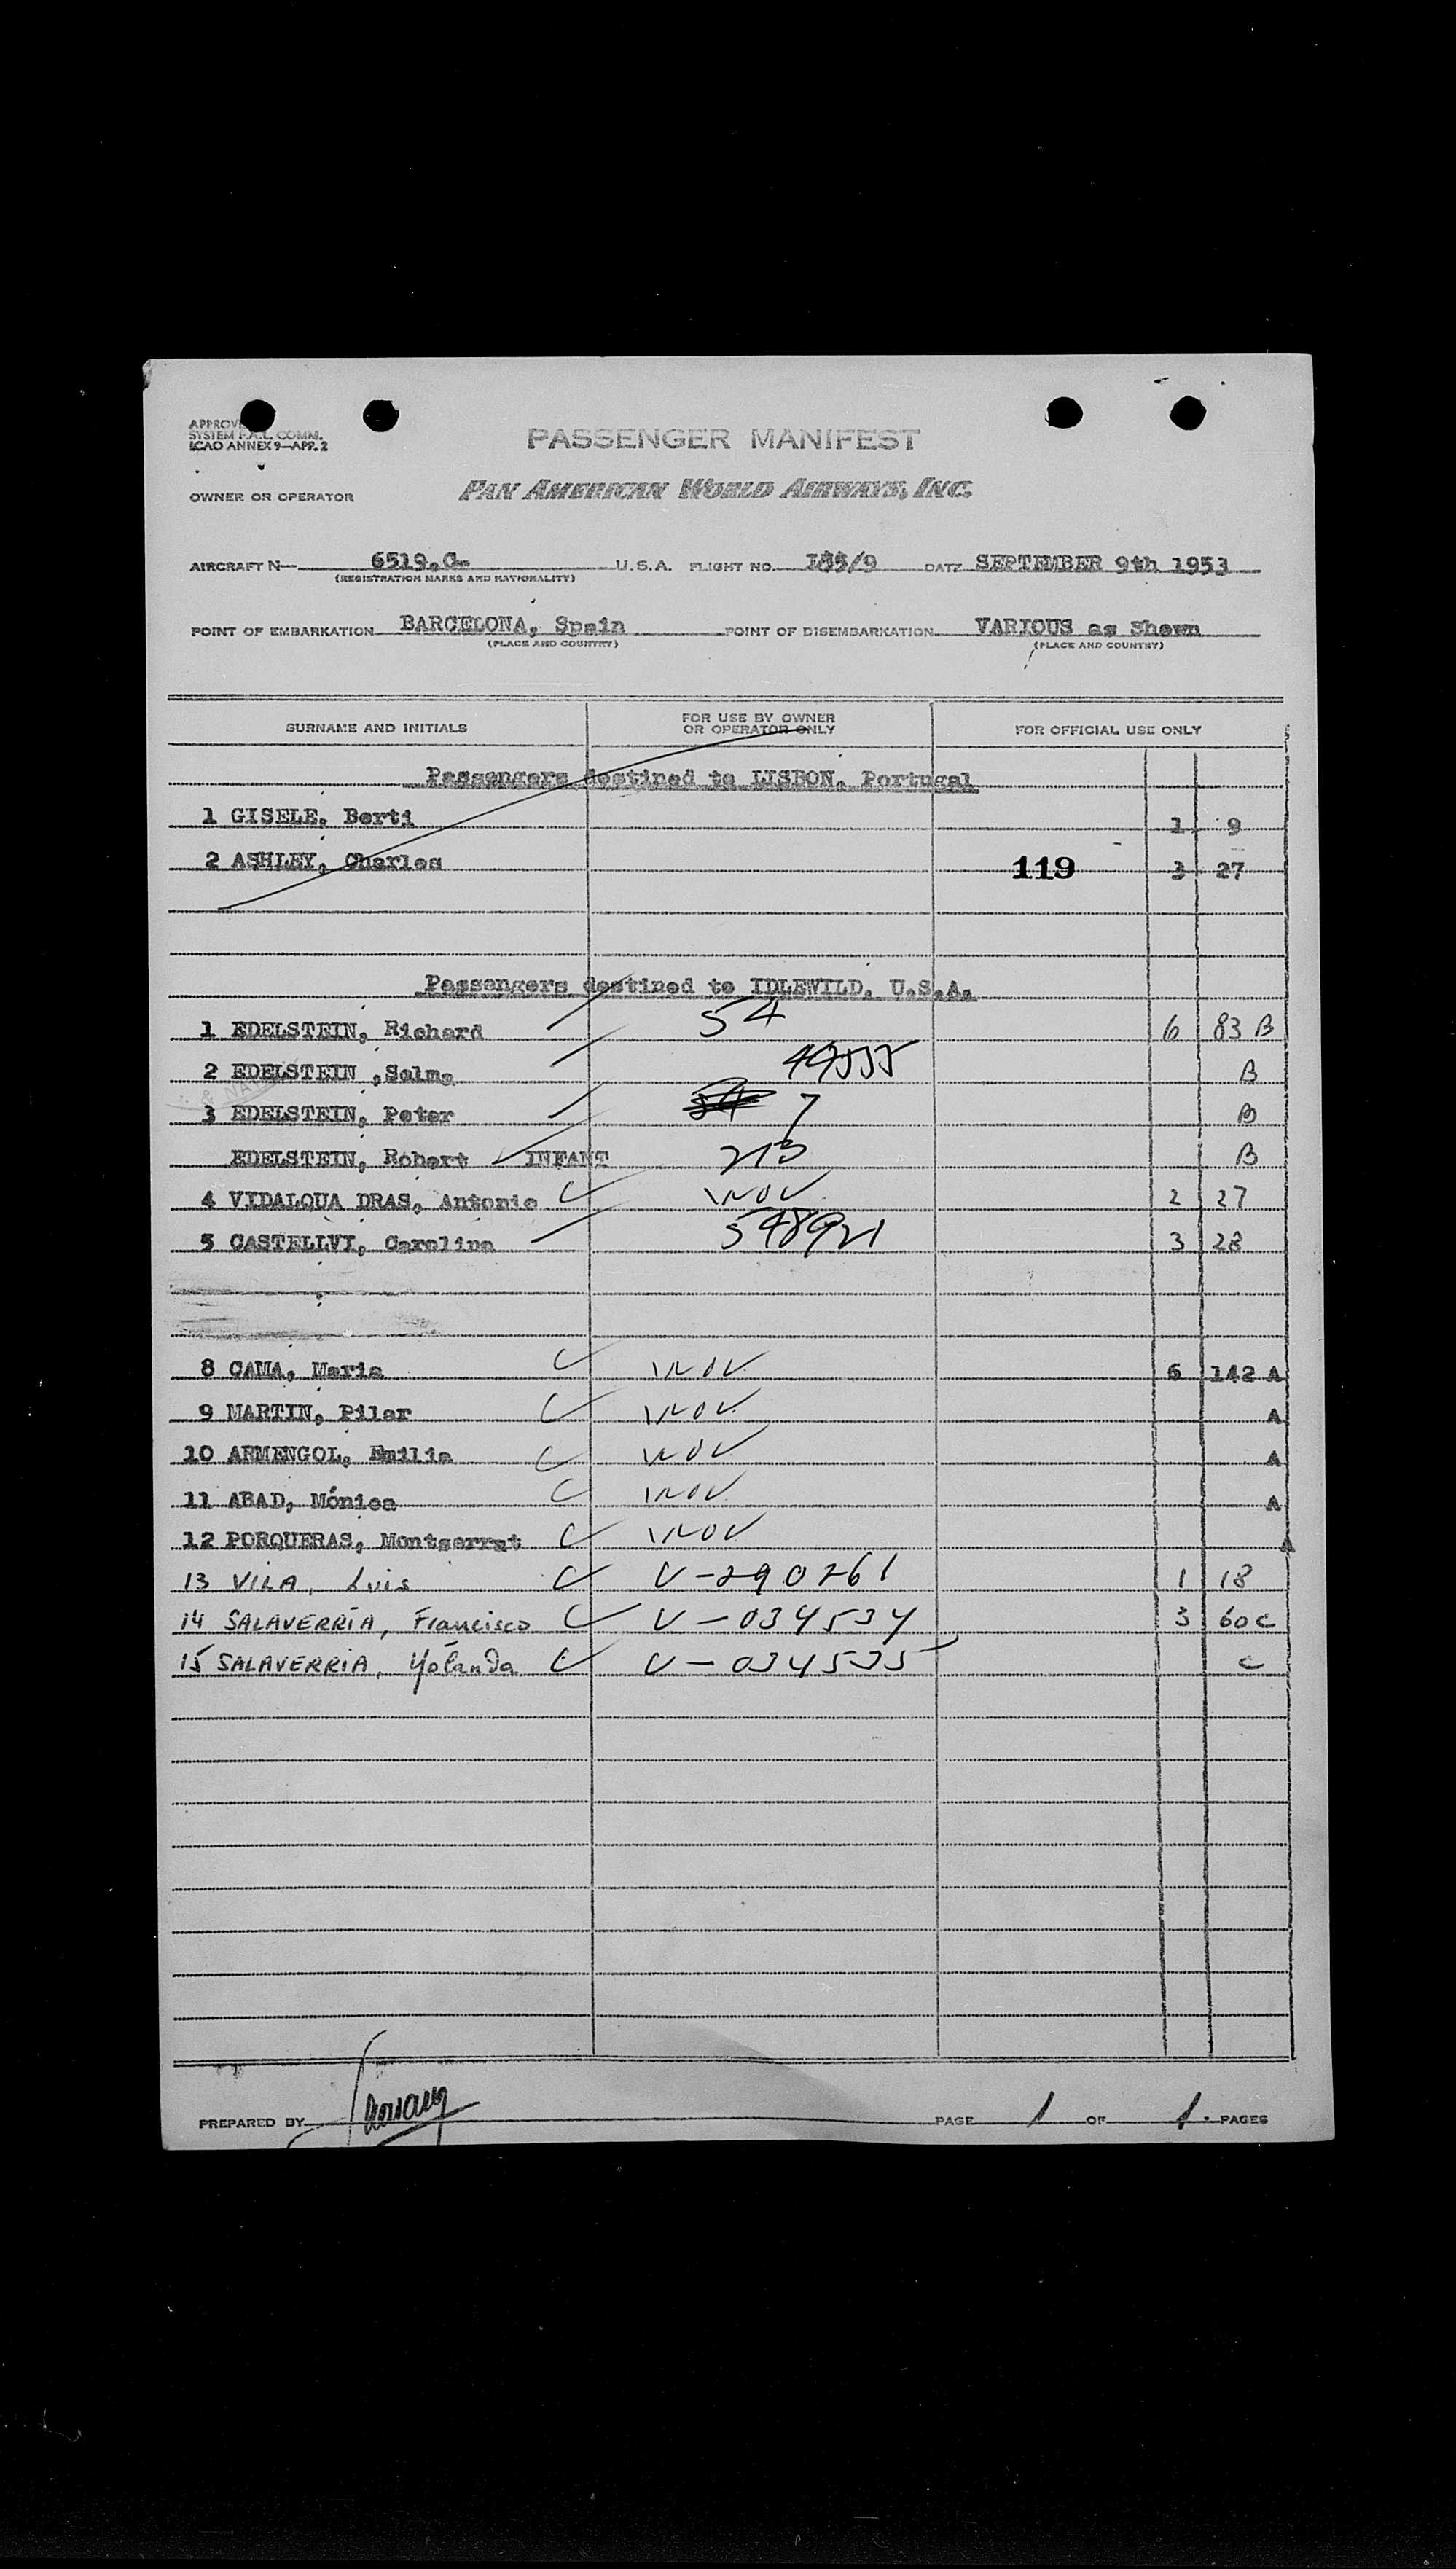 APPROVE
SYSTEM F.A.L. COMM.
ICAO ANNEX 9—APP. 2
PASSENGER MANIFEST
OWNER OR OPERATOR PAN AMERICAN WORLD AIRWAYS, INC.
AIRCRAFT N— 6519.C— U.S.A. FLIGHT NO. /9 DATE SEPTEMBER 9th 1953
(REGISTRATION MARKS AND NATIONALITY)
POINT OF EMBARKATION BARCELONA, Spain POINT OF DISEMBARKATION VARIOUS as Shown
(PLACE AND COUNTRY) (PLACE AND COUNTRY)
SURNAME AND INITIALS FOR USE BY OWNER OR OPERATOR ONLY FOR OFFICIAL USE ONLY
Passengers destined to LISBON, Portugal
1 GISELE, Berti 1 9
2 ASHLEY, Charles 119 3 27
Passengers destined to IDLEWILD, U.S.A.
1 EDELSTEIN, Richard 54 6 83 B
2 EDELSTEIN ,Selma 49555 B
3 EDELSTEIN, Peter 7 B
EDELSTEIN, Robert INFANT 213 B
4 VIDALQUA DRAS, Antonio INOV 2 27
5 CASTELLVI, Carolina 548921 3 28
8 CAMA, Maria INOV 6 142 A
9 MARTIN, Pilar INOV A
10 ARMENGOL, Emilia INOV A
11 ABAD, Mónica INOV A
12 PORQUERAS, Montserrat INOV A
13 VILA, Luis V-290261 1 18
14 SALAVERRÍA, Francisco V-034534 3 60 C
15 SALAVERRIA, Yolanda V-034535 C
PREPARED BY PAGE 1 OF 1. PAGES